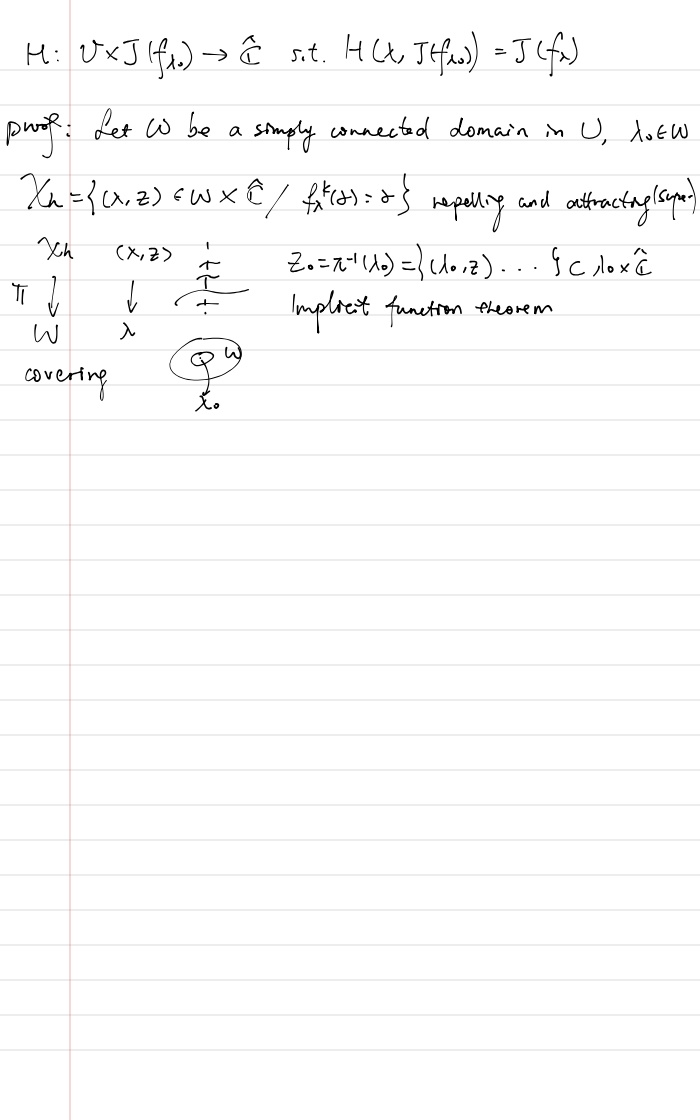 H: U×J(f_{λ₀}) → Ĉ s.t. H(λ, J(f_{λ₀})) = J(f_λ)
proof: Let W be a simply connected domain in U, λ₀∈W
X_k = {(λ, z) ∈ W × Ĉ / f_λ^k(z) = z} repelling and attracting (super)
X_k (λ, z) Z₀ = π⁻¹(λ₀) = {(λ₀, z) ... } ⊂ λ₀ × Ĉ
π ↓ ↓ Implicit function theorem
W λ
W
covering
λ₀